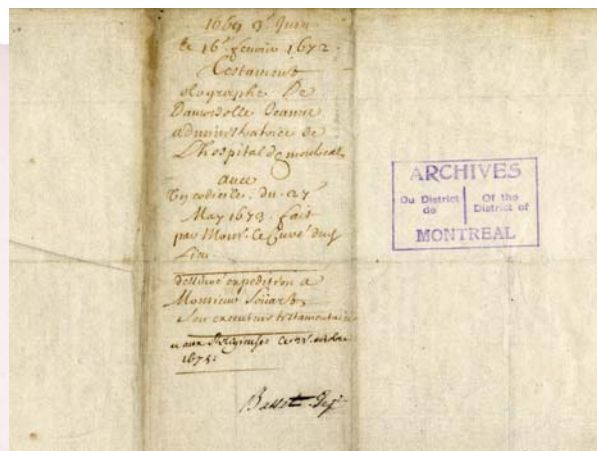 1669 3e Juin
le 16e feuvrie 1672
Testament
olographe De
Damoiselle Jeanne
administratrice de
L'hospital de montreal
auec
Vn codicile du 27e
May 1673 fait
par Monsr. le Curé dud
Lieu.
dellivré expedition a
Monsieur Soüart
son executeur testamentaire
et aux Religieuses ce
1675:
Basset
ARCHIVES
Du District de
Of the District of
MONTREAL